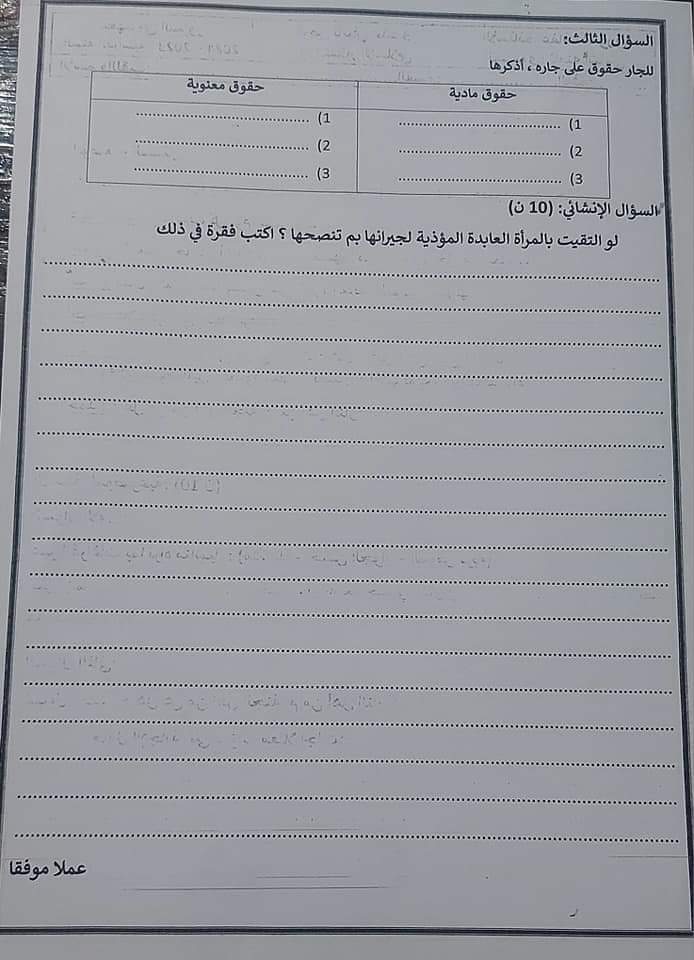 السؤال الثالث:
للجار حقوق على جاره ، أذكرها
حقوق مادية
حقوق معنوية
1) ........................................ 1) ........................................
2) ........................................ 2) ........................................
3) ........................................ 3) ........................................
السؤال الإنشائي: (10 ن)
لو التقيت بالمرأة العابدة المؤذية لجيرانها بم تنصحها ؟ اكتب فقرة في ذلك
عملا موفقا